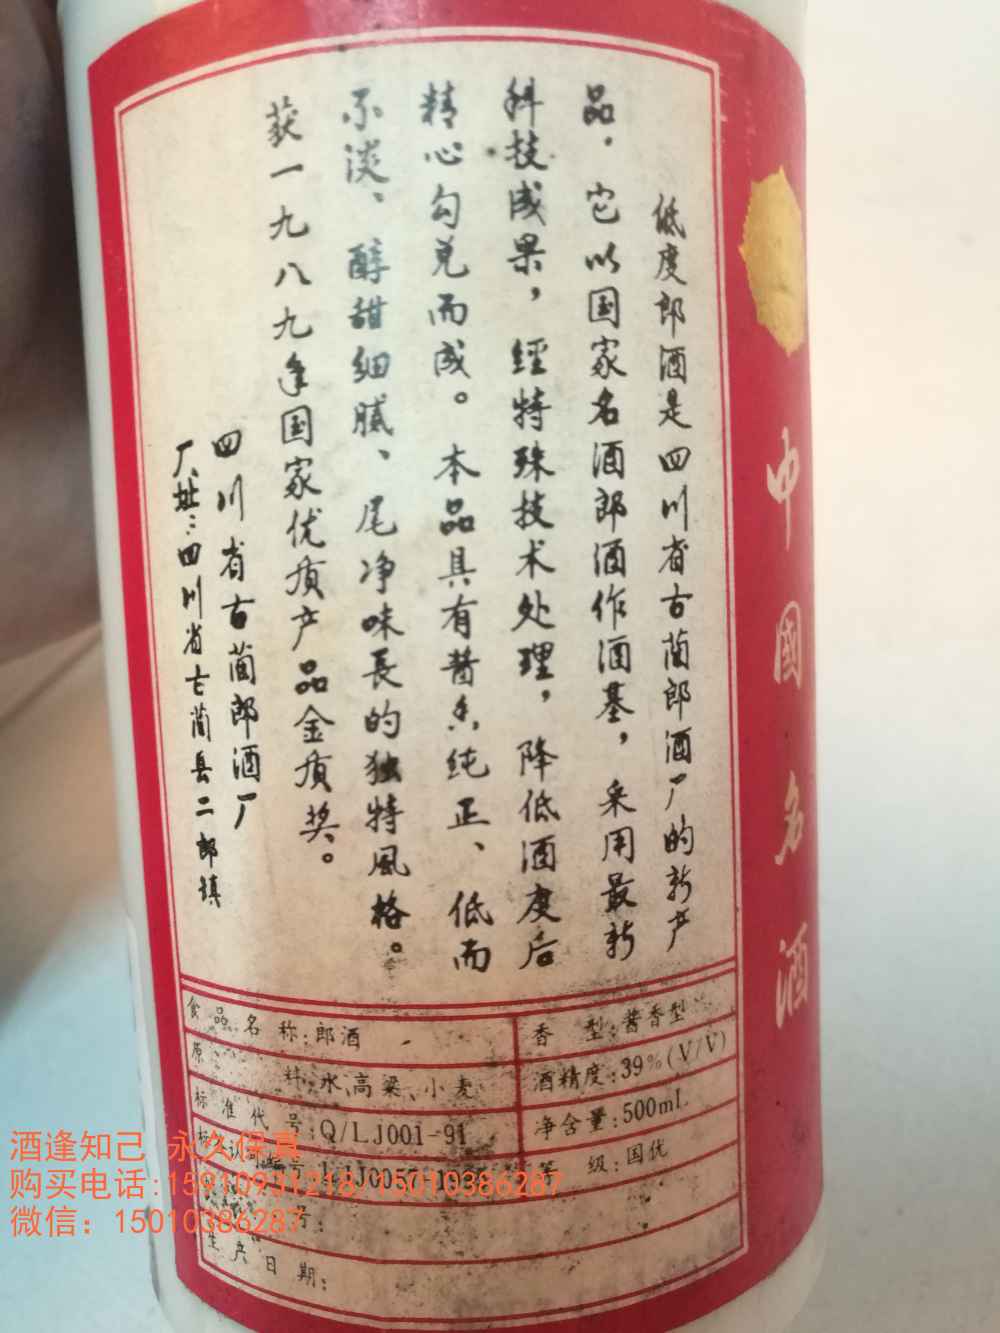 低度郎酒是四川省古蔺郎酒厂的新产
品。它以国家名酒郎酒作酒基，采用最新
科技成果，經特殊技术处理，降低酒度后
精心勾兑而成。本品具有酱香纯正、低而
不淡、醇甜细腻、尾净味長的独特風格。
获一九八九年国家优质产品金质奖。
四川省古蔺郎酒厂
厂址：四川省古蔺县二郎镇
食品名称：郎酒
香型：酱香型
原料：水、高粱、小麦
酒精度：39%(V/V)
标准代号：Q/LJ001-91
净含量：500mL
等级：国优
生产日期：
中國名酒
酒逢知己 永久保真
购买电话:15910931218 15010386287
微信：15010386287